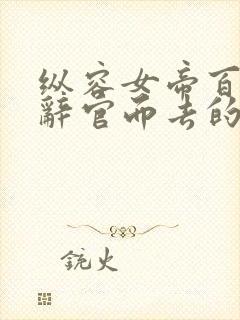 纵容女帝百
辞官而去的
铳火